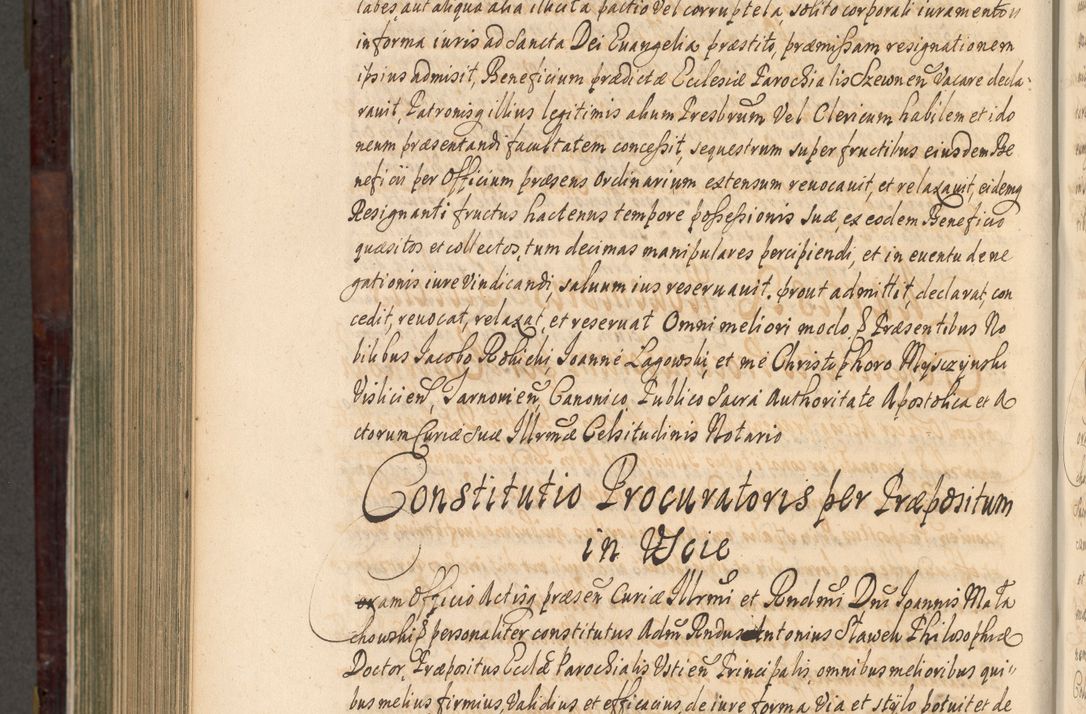 labes, aut aliqua alia illicita pactio vel corruptela, solito corporali iuramento
in forma iuris ad Sancta Dei Euangelia præstito, præmissam resignationem
ipsius admisit, Beneficium prædictæ Ecclesiæ Parochialis Szewneñ Vacare decla-
rauit, Patronisq illius legitimis alium Presbrum Vel Clericum habilem et ido
neum præsentandi facultatem concessit, sequestrum super fructibus eiusdem Be
neficii per Officium præsens Ordinarium extensum reuocauit, et relaxauit, eidemq
Resignanti fructus hactenus tempore possessionis suæ, ex eodem Beneficio
quæsitos et collectos, tum decimas manipulares percipiendi, et in euentu dene
gationis iure Vindicandi, saluum ius reseruauit. prout admittit, declarat, con
cedit, reuocat, relaxat, et reseruat Omni meliori modo P Præsentibus No
bilibus Iacobo Rokichi, Joanné Lagowski, et mé Christophoro Myszczynski
Vislicieñ, Tarnouieñ Canonico, Publico Sacra Authoritate Apostolica et A
ctorum Curiæ Suæ Illrmæ Celsitudinis Notario
Constitutio Procuratoris per Præpositum
in Uście
Coram Officio Actisq præseñ Curiæ Illrmi et Rndmi Dni Joannis Mała
chowski P personaliter constitutus Admu Rndus Antonius Sławek Philosophiæ
Doctor, Præpositus Ecclæ Parochialis Ustieñ Principalis, omnibus melioribus qui-
bus melius firmius, Validius et efficacius, de iure forma Via et stylo potuit et de